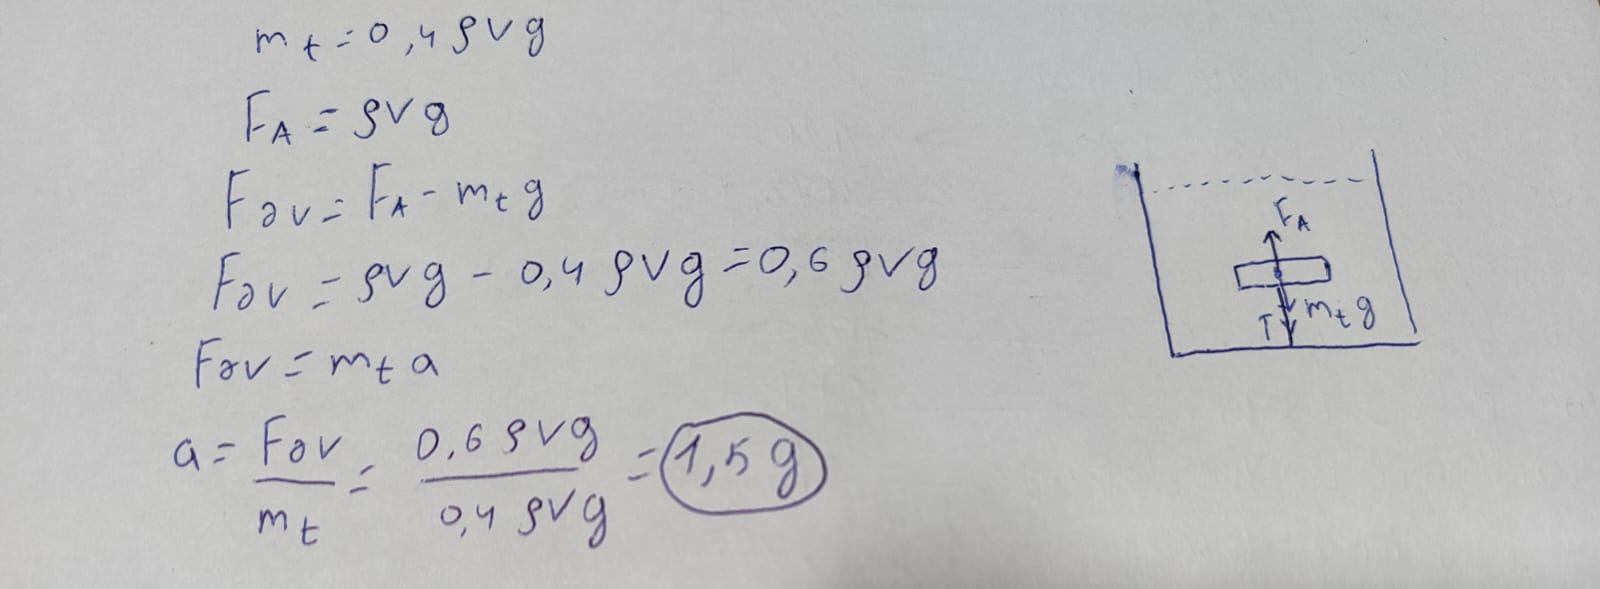 m_t = 0,4 ρVg
F_A = ρVg
F_∂v = F_A - m_t g
F_∂v = ρVg - 0,4 ρVg = 0,6 ρVg
F_∂v = m_t a
a = F_∂v / m_t = 0,6 ρVg / 0,4 ρVg = 1,5 g
F_A
T m_t g